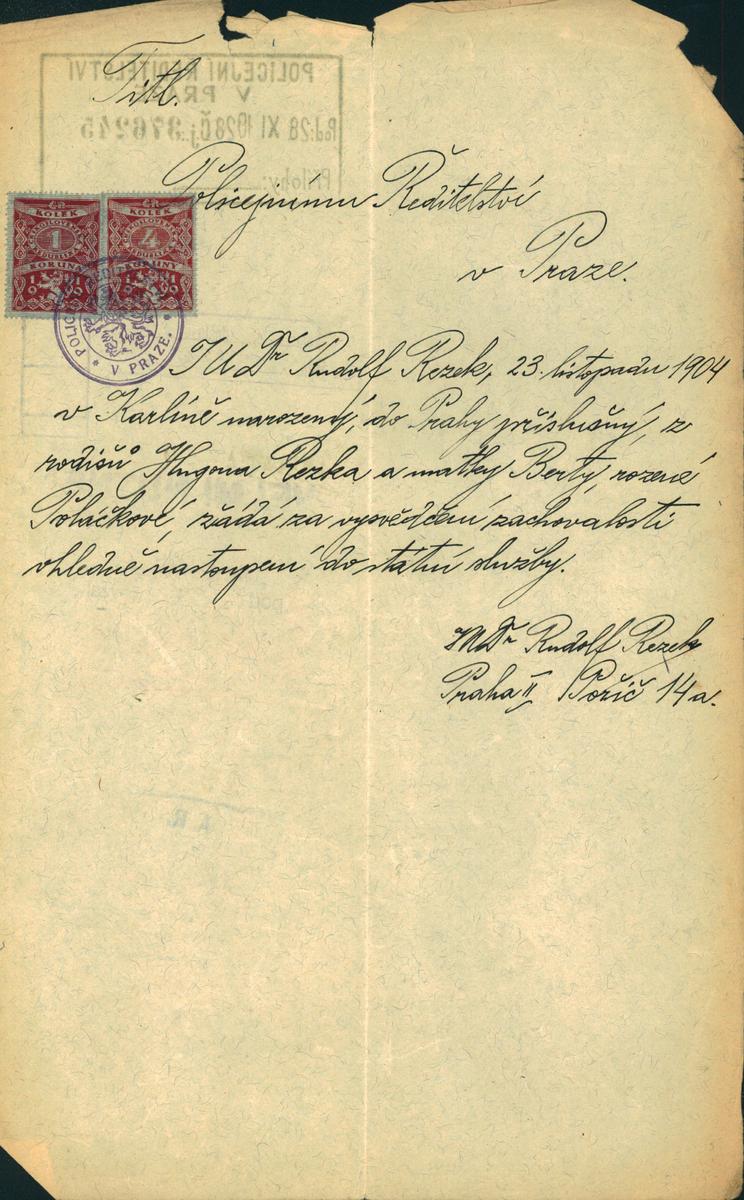 Titl.
POLICEJNÍ ŘEDITELSTVÍ
V PRAZE
Pod: 28 XI 1928 Čj 376245
Přílohy:
Policejnímu Ředitelství
v Praze.
KOLEK
KOLEK
1
4
KORUNY
POLICEJNÍ
V PRAZE.
JUDr Rudolf Rezek, 23. listopadu 1904
v Karlíně narozený, do Prahy příslušný, z
rodičů Hugona Rezka a matky Berty, rozené
Poláčkové, žádá za vysvědčení zachovalosti
ohledně nastoupení do státní služby.
JUDr Rudolf Rezek
Praha II Poříč 14a.